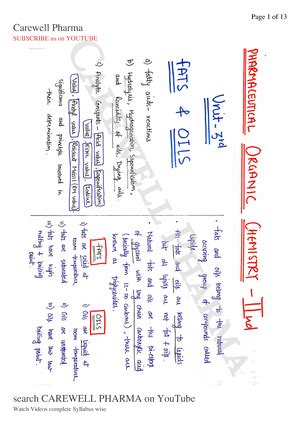 Page 1 of 13
Carewell Pharma
SUBSCRIBE us on YOUTUBE
CAREWELL PHARMA
PHARMACEUTICAL ORGANIC CHEMISTRY-IInd
Unit-3rd
FATS & OILS
a) Fatty acids - reactions
b) Hydrolysis, Hydrogenation, Saponification,
and Rancidity of oils, Drying oils
c) Analytical constants - Acid value, Saponification
value, Ester value, Iodine
value, Acetyl value, Reichert Meissl (RM) value
Significance and principle involved in
their determination.
• Fats and oils belong to the natural
occurring group of compounds called
lipids.
• All fats and oils are belong to lipids
but all lipids are not fat & oils.
• Natural fats and oils are the tri-esters
of glycerol with long chain carboxylic acid
these are
known as triglycerides.
FATS
i) fats are solid at
room temperature.
ii) fats are saturated
iii) fats have high
melting & boiling
point
OILS
i) Oils are liquid at
room temperature.
ii) Oils are unsaturated
iii) Oils have low
boiling point.
search CAREWELL PHARMA on YouTube
Watch Videos complete Syllabus wise